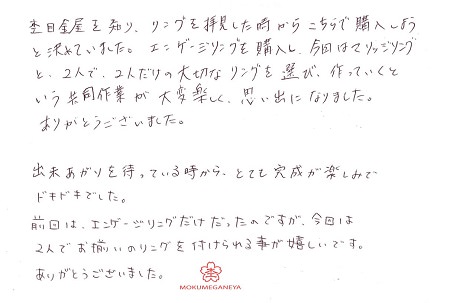 杢目金屋を知り、リングを拝見した時からこちらで購入しよう
と決めていました。エンゲージリングを購入し、今回はマリッジリング
と、2人で、2人だけの大切なリングを選び、作っていくと
いう共同作業が大変楽しく、思い出になりました。
ありがとうございました。
出来あがりを待っている時から、とても完成が楽しみで
ドキドキでした。
前回は、エンゲージリングだけだったのですが、今回は
2人でお揃いのリングを付けられる事が嬉しいです。
ありがとうございました。
MOKUMEGANEYA